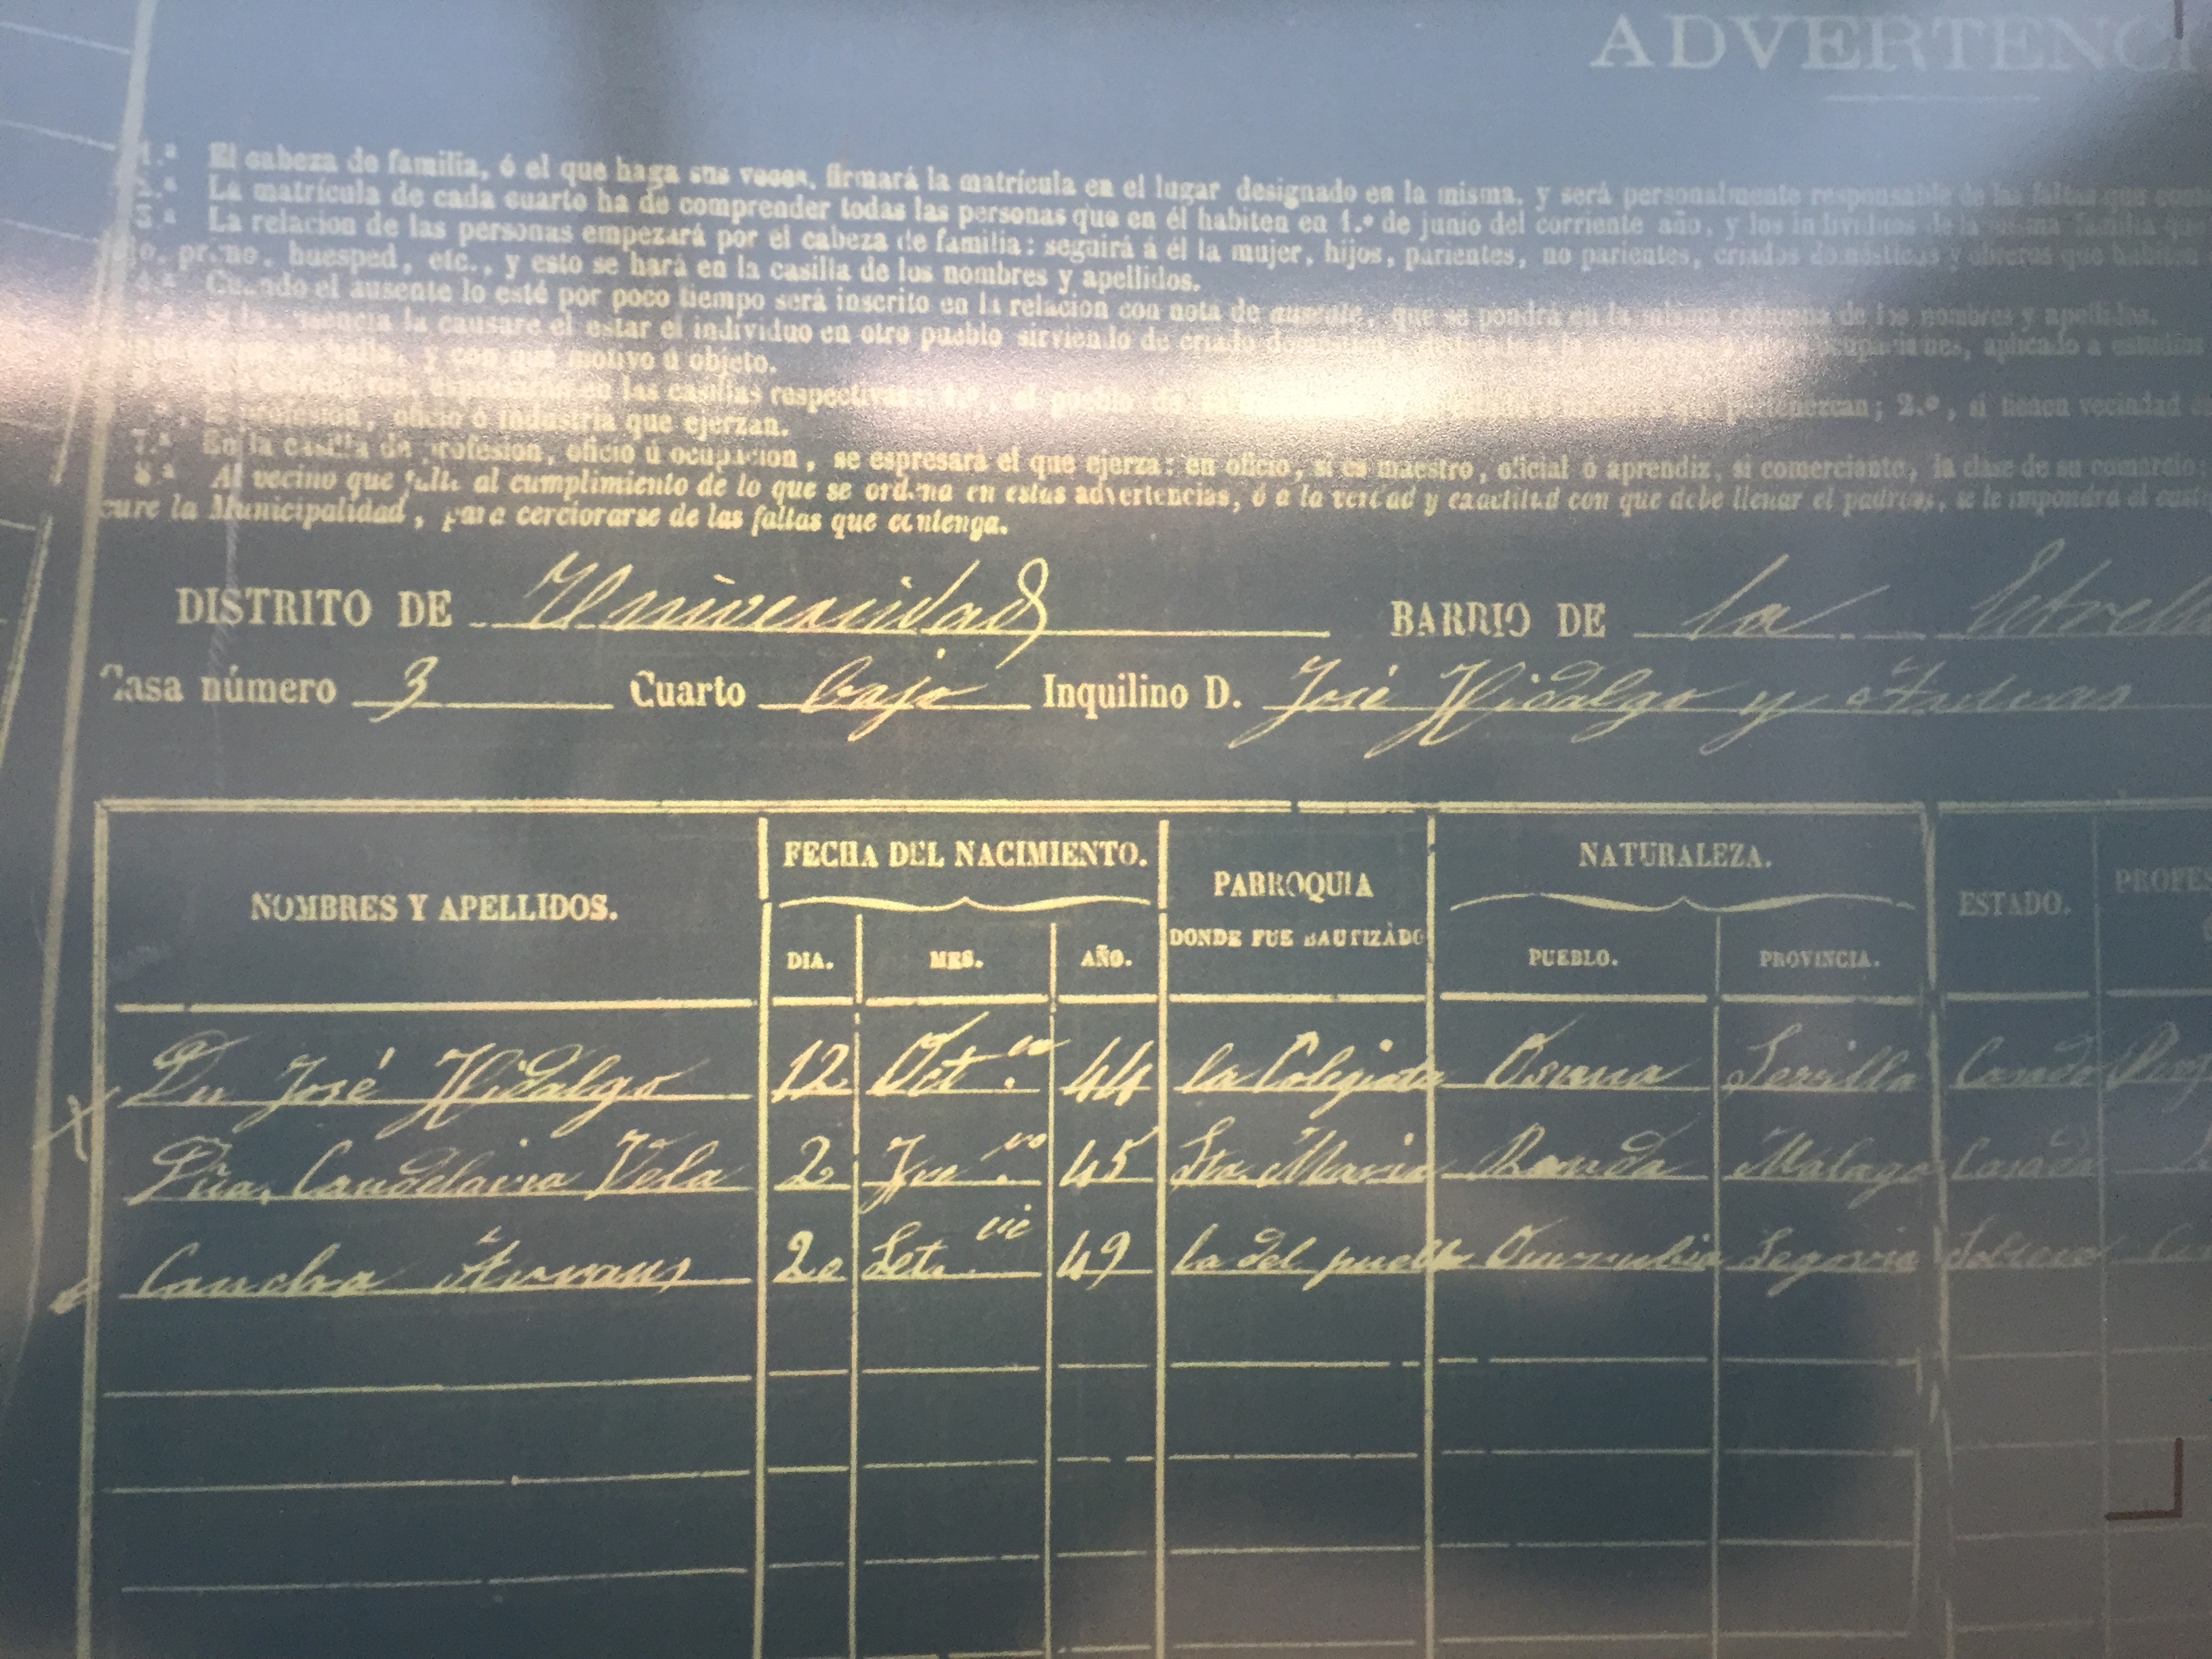 ADVERTENCI
1.ª El cabeza de familia, ó el que haga sus veces, firmará la matrícula en el lugar designado en la misma, y será personalmente responsable de las faltas que
2.ª La matrícula de cada cuarto ha de comprender todas las personas que en él habiten en 1.º de junio del corriente año, y los individuos de la misma familia que
3.ª La relacion de las personas empezará por el cabeza de familia: seguirá á él la mujer, hijos, parientes, no parientes, criados domésticos y obreros que habiten
huesped, etc., y esto se hará en la casilla de los nombres y apellidos.
4.ª Cuando el ausente lo esté por poco tiempo será inscrito en la relacion con nota de ausente, que se pondrá en la misma columna de los nombres y apellidos.
la causare el estar el individuo en otro pueblo sirviendo de criado aplicado a estudios
halla, y con qué motivo ú objeto.
las casillas respectivas 2.º, si tienen vecindad
profesion, oficio ó industria que ejerzan.
7.ª En la casilla de profesion, oficio ú ocupacion, se espresará el que ejerza: en oficio, si es maestro, oficial ó aprendiz, si comerciante, la clase de su comercio
8.ª Al vecino que falte al cumplimiento de lo que se ordena en estas advertencias, ó a la verdad y exactitud con que debe llenar el padron, se le impondrá el
cure la Municipalidad, para cerciorarse de las faltas que contenga.
DISTRITO DE Universidad BARRIO DE la Estrell
Casa número 3 Cuarto bajo Inquilino D. José Hidalgo y
NOMBRES Y APELLIDOS. FECHA DEL NACIMIENTO. PARROQUIA DONDE FUE BAUTIZADO NATURALEZA. ESTADO. PROFES
DIA. MES. AÑO. PUEBLO. PROVINCIA.
Dn José Hidalgo 12 Oct.re 44 la Colegiata Osuna Sevilla Casado
Dña. Candelaria Vela 2 45 Sta. Maria Ronda Malaga Casada
20 Set. 49 la del pueblo Segovia